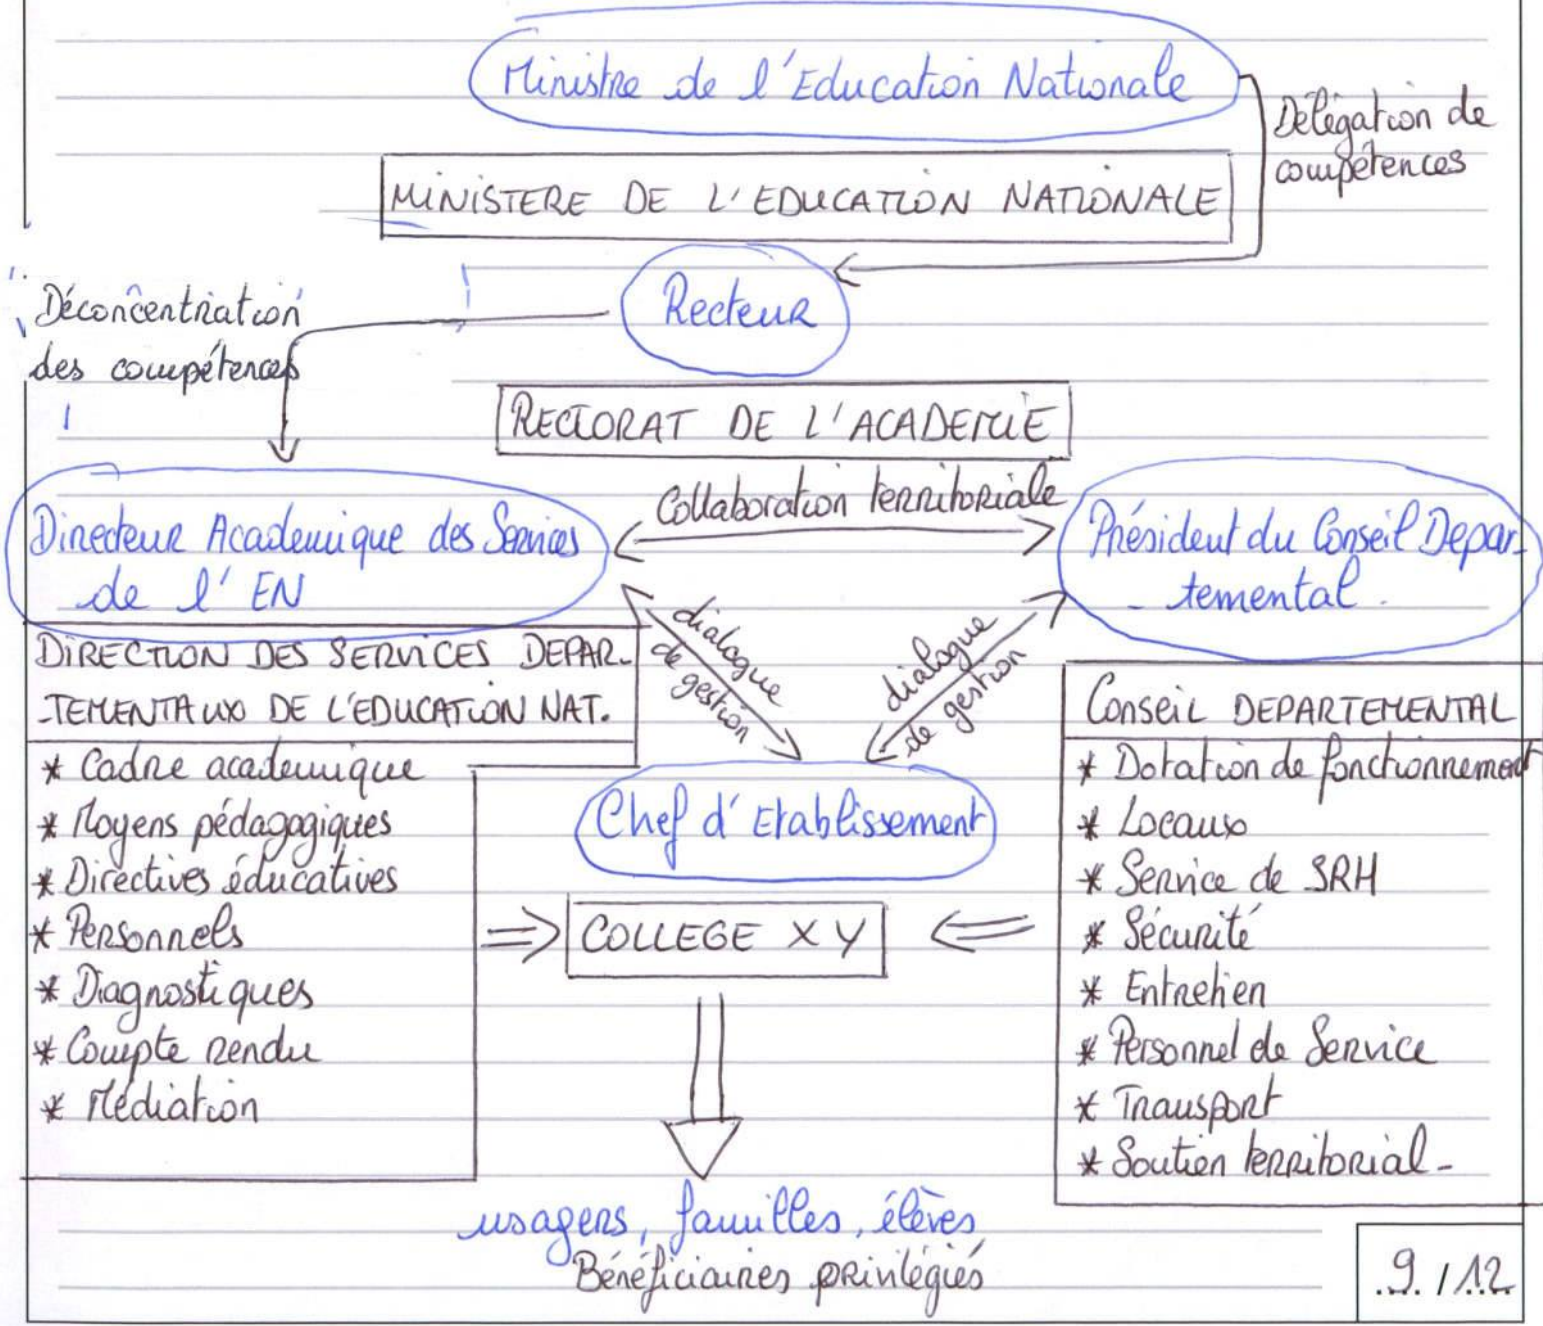 Ministre de l'Education Nationale
Délégation de
compétences
MINISTERE DE L'EDUCATION NATIONALE
Recteur
Déconcentration
des compétences
RECTORAT DE L'ACADEMIE
Collaboration territoriale
Directeur Academique des Services
de l'EN
Président du Conseil Depar-
- temental.
dialogue
de gestion
dialogue
de gestion
DIRECTION DES SERVICES DEPAR-
-TEMENTAUX DE L'EDUCATION NAT.
* Cadre academique
* Moyens pédagogiques
* Directives éducatives
* Personnels
* Diagnostiques
* Compte rendu
* Médiation
Chef d'Etablissement
COLLEGE XY
Conseil DEPARTEMENTAL
* Dotation de fonctionnement
* Locaux
* Service de SRH
* Sécurité
* Entretien
* Personnel de Service
* Transport
* Soutien territorial-
usagers, familles, élèves
Bénéficiaires privilégiés
.9. / .12